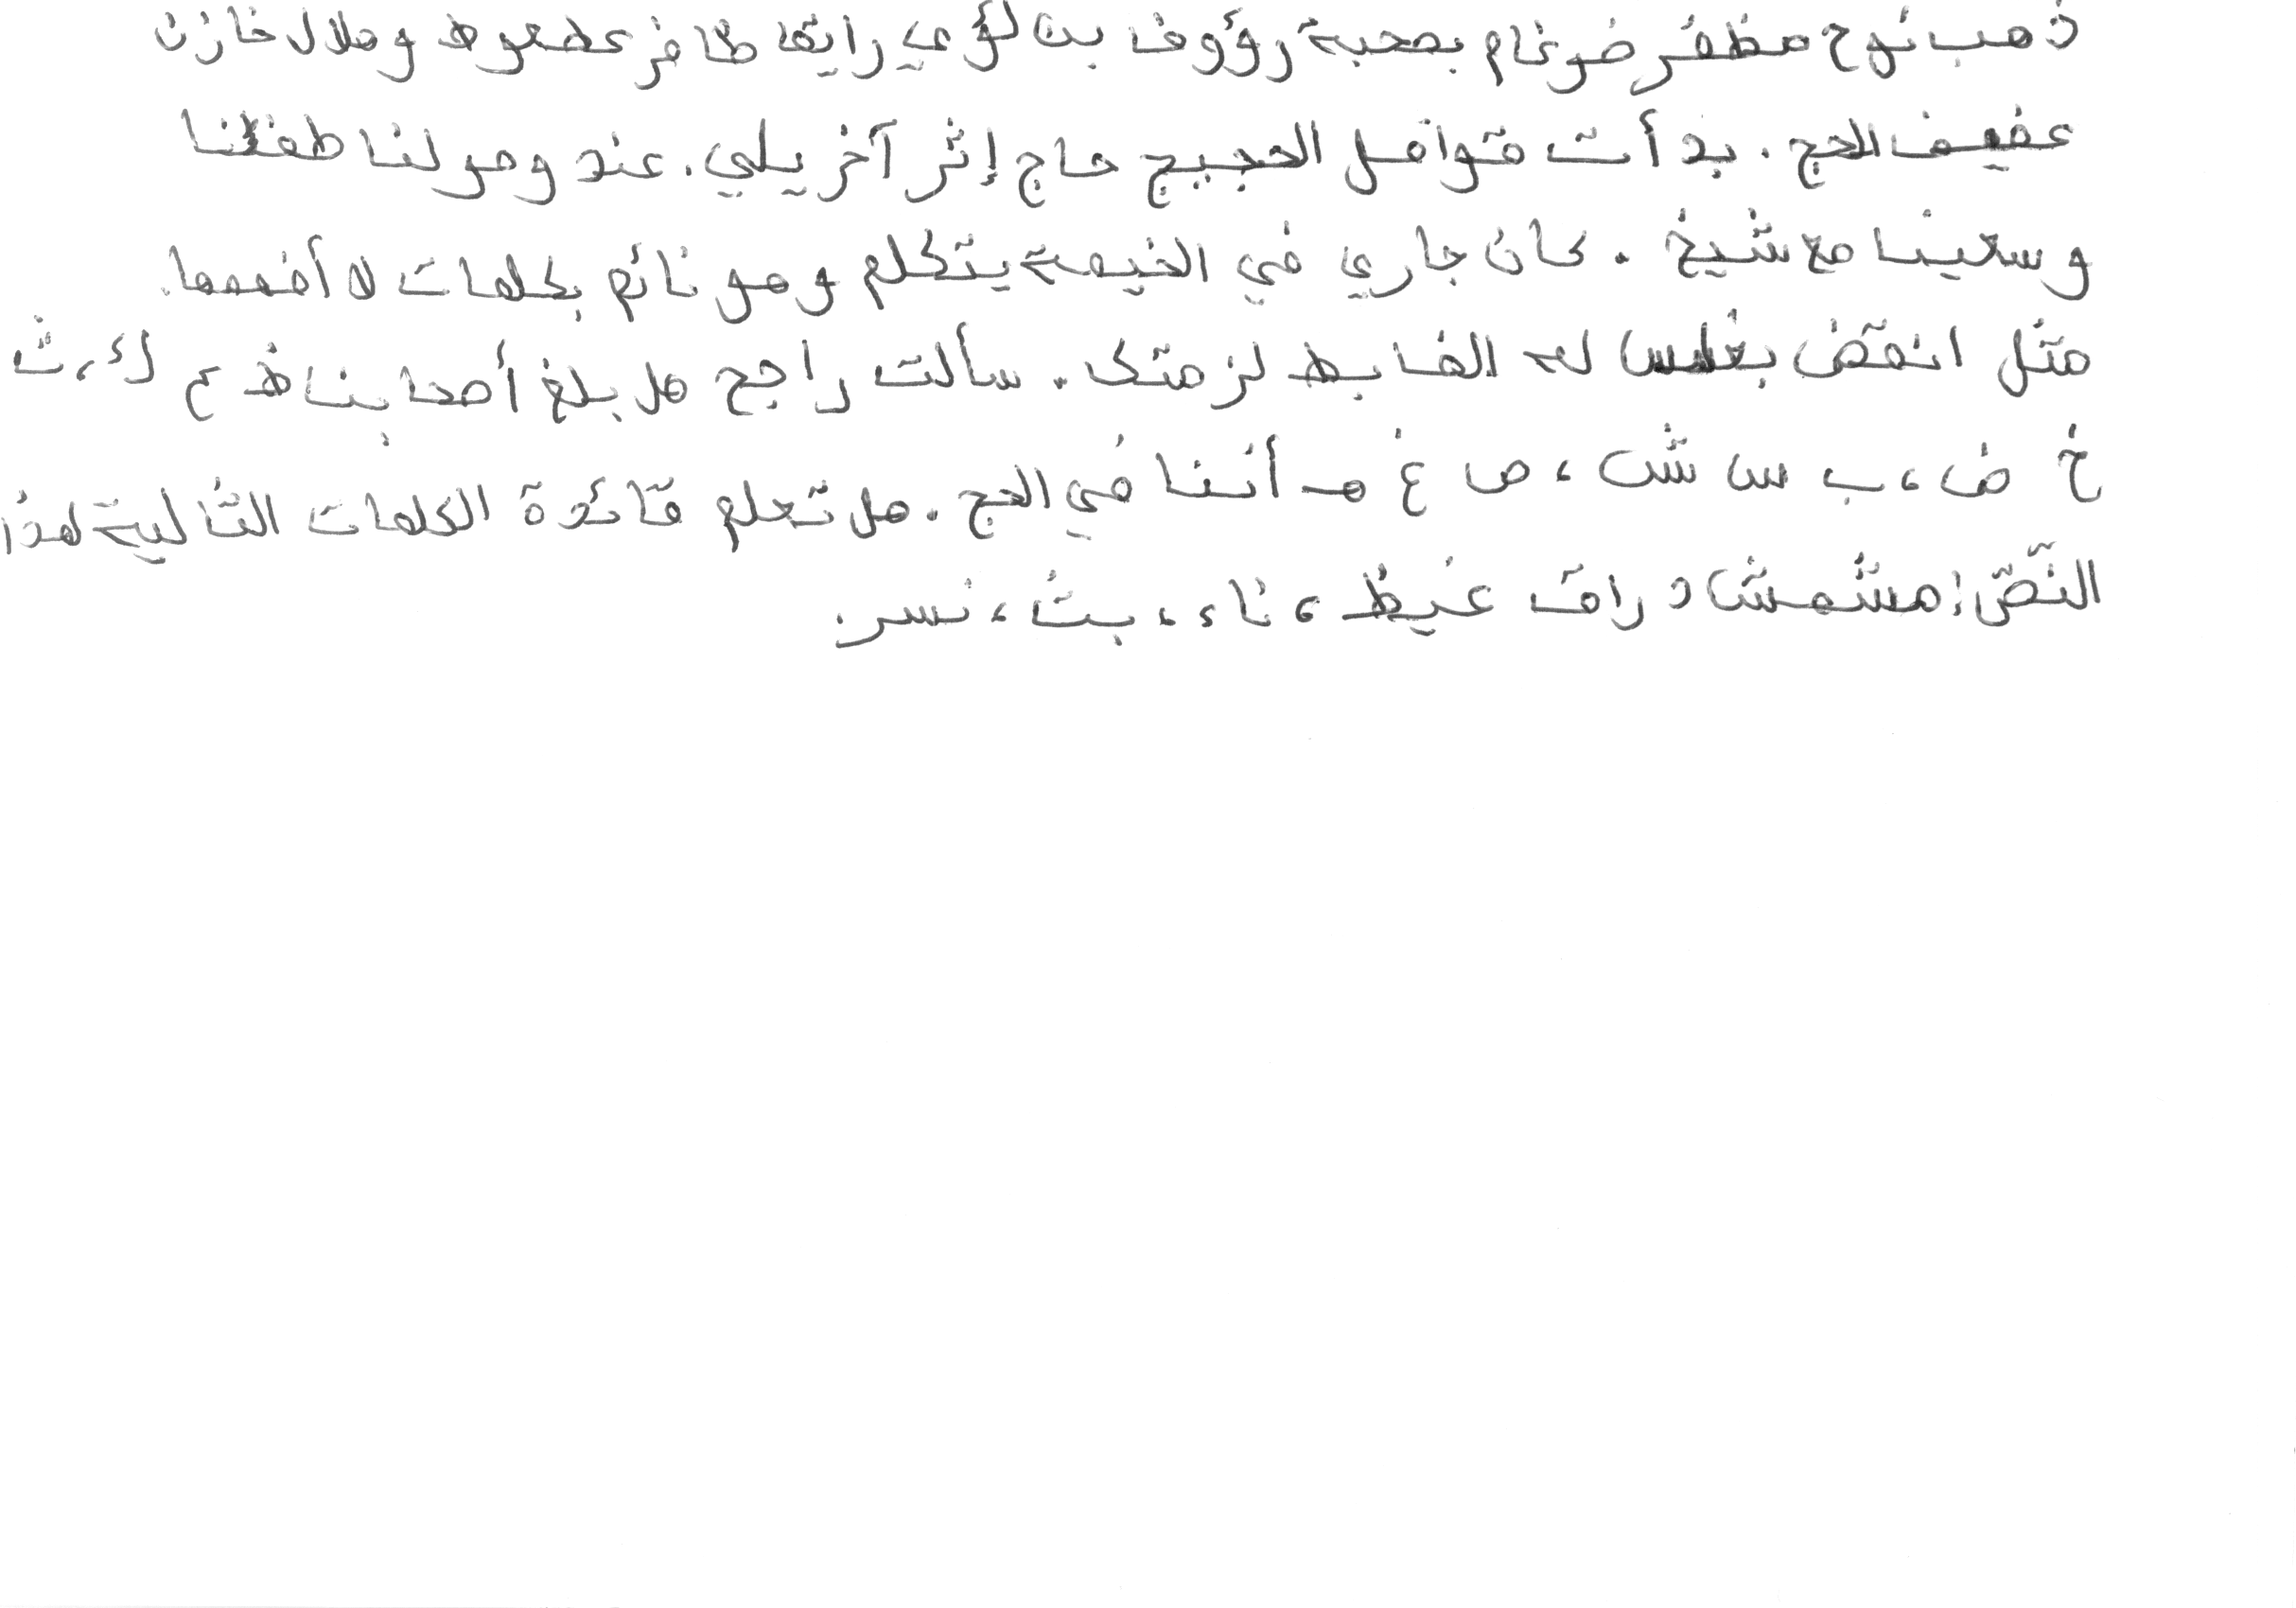 ذهب نوح مظفر ضرغام بصحبة رؤوف بن لؤي رايقا ظافر عطعوط وهلال خازن
عفيف للحج . بدأت قوافل الحجيج حاج إثر آخر يلي . عند وصولنا طفنا
وسعينا مع شيخ . كان جاري في الخيمة يتكلم وهو نائم بكلمات لا أفهمها .
مثل انقض بغلس له الضابط لزمتك . سألت راجح هل بلغ أصحابنا ظ ع ك ، ث
خ ض ، ب س ش ، ص غ هـ أننا في الحج . هل تعلم قائرة الكلمات التالية لهذا
النّصّ : مشمش دراق غيظ ، ناء ، بث ، نسر .